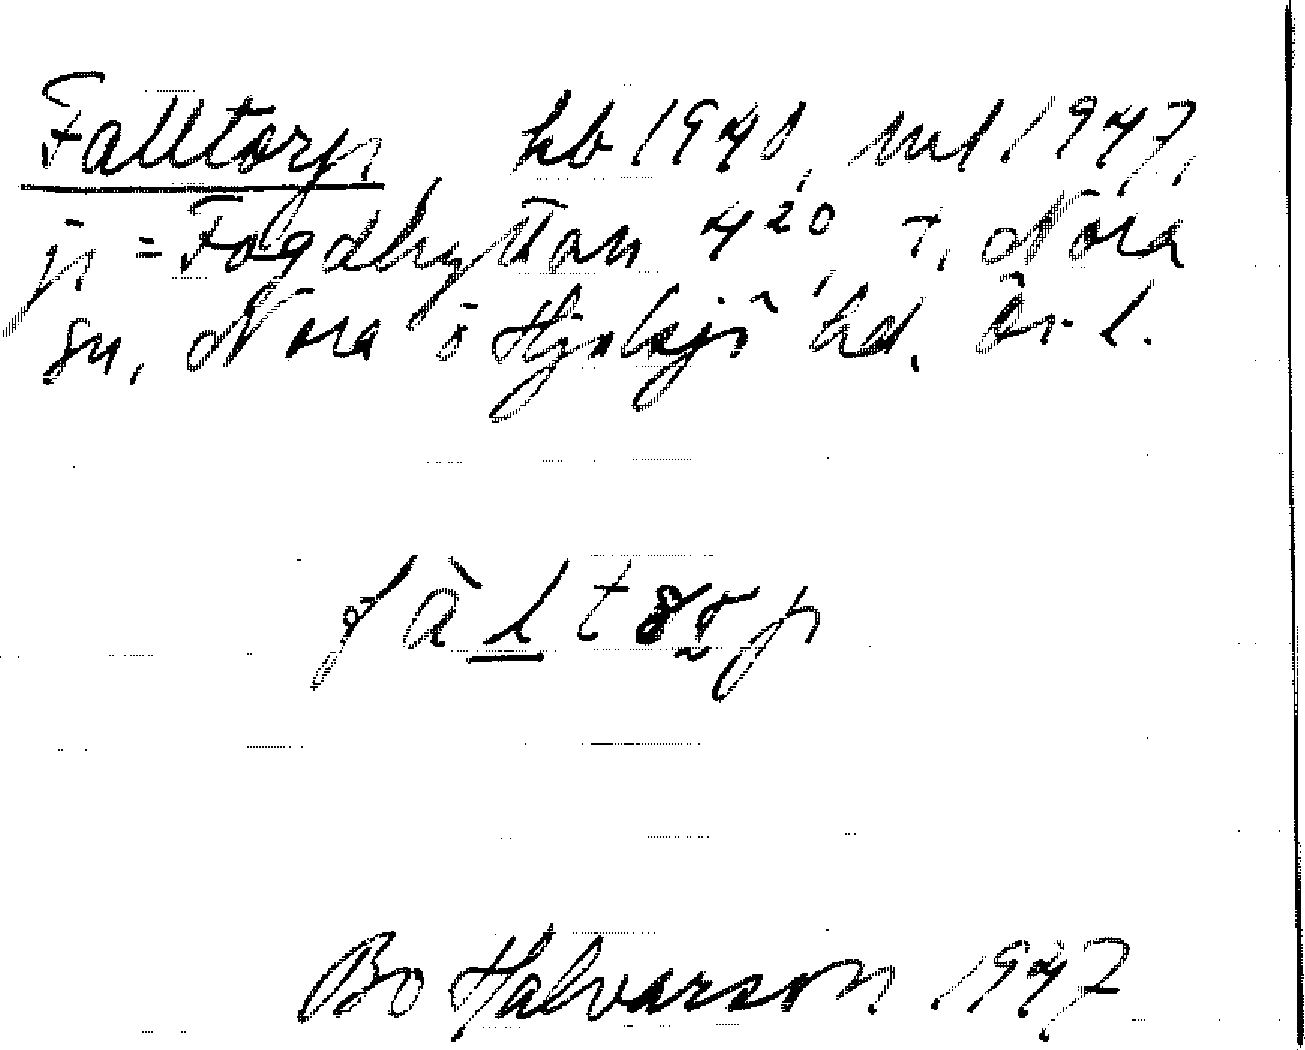 Falltorp, hb 1940, ml 1947,
js = Fogdhyttan 4²⁰, +, Nora
sn, Nora o Hjulsjö hd. Ör. l.
fàltorp
Bo Halvarson 1947